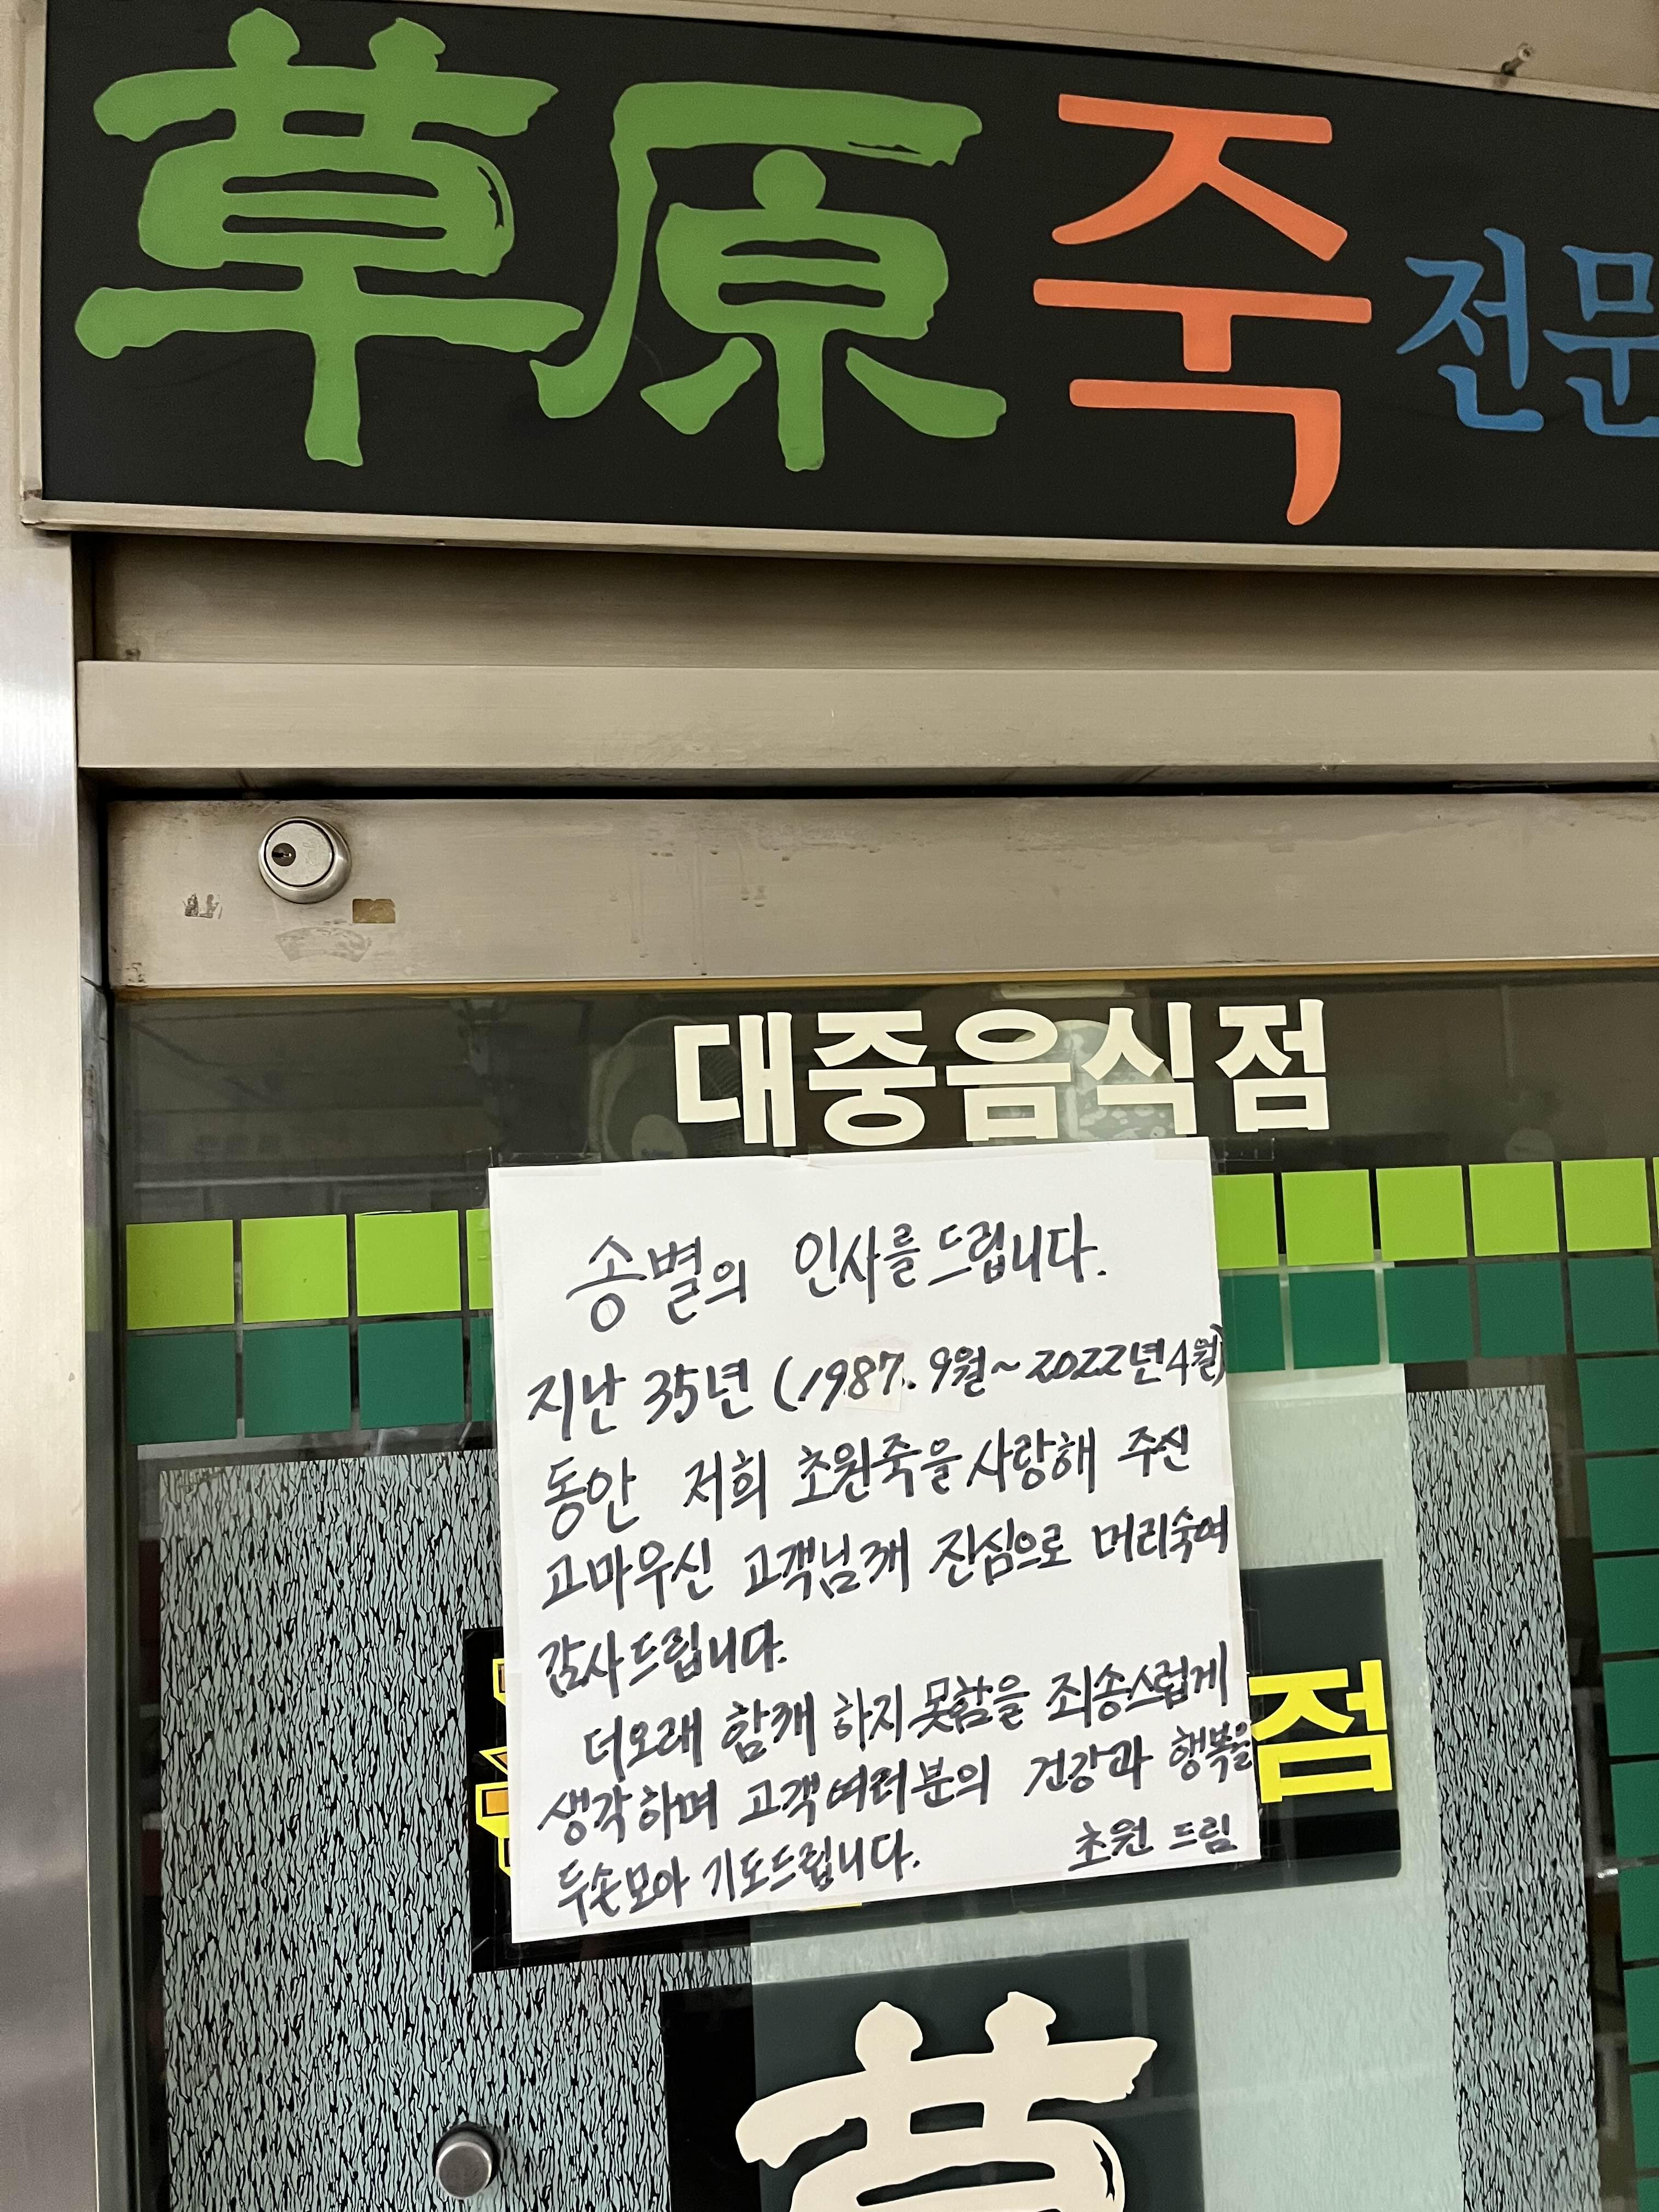 草原죽전문
대중음식점
송별의 인사를 드립니다.
지난 35년 (1987. 9월~2022년4월)
동안 저희 초원죽을 사랑해 주신
고마우신 고객님께 진심으로 머리숙여
감사드립니다.
더오래 함께 하지 못함을 죄송스럽게
생각하며 고객여러분의 건강과 행복을
두손모아 기도드립니다. 초원 드림
점
草